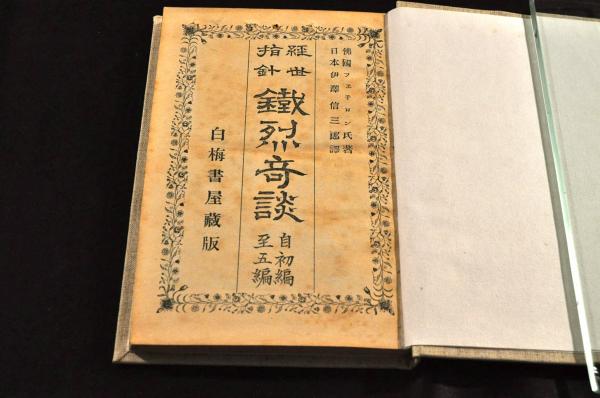 佛國フエヌロン氏著
日本伊澤信三郎譯
經世
指針
鐵烈奇談
自初編
至五編
白梅書屋藏版